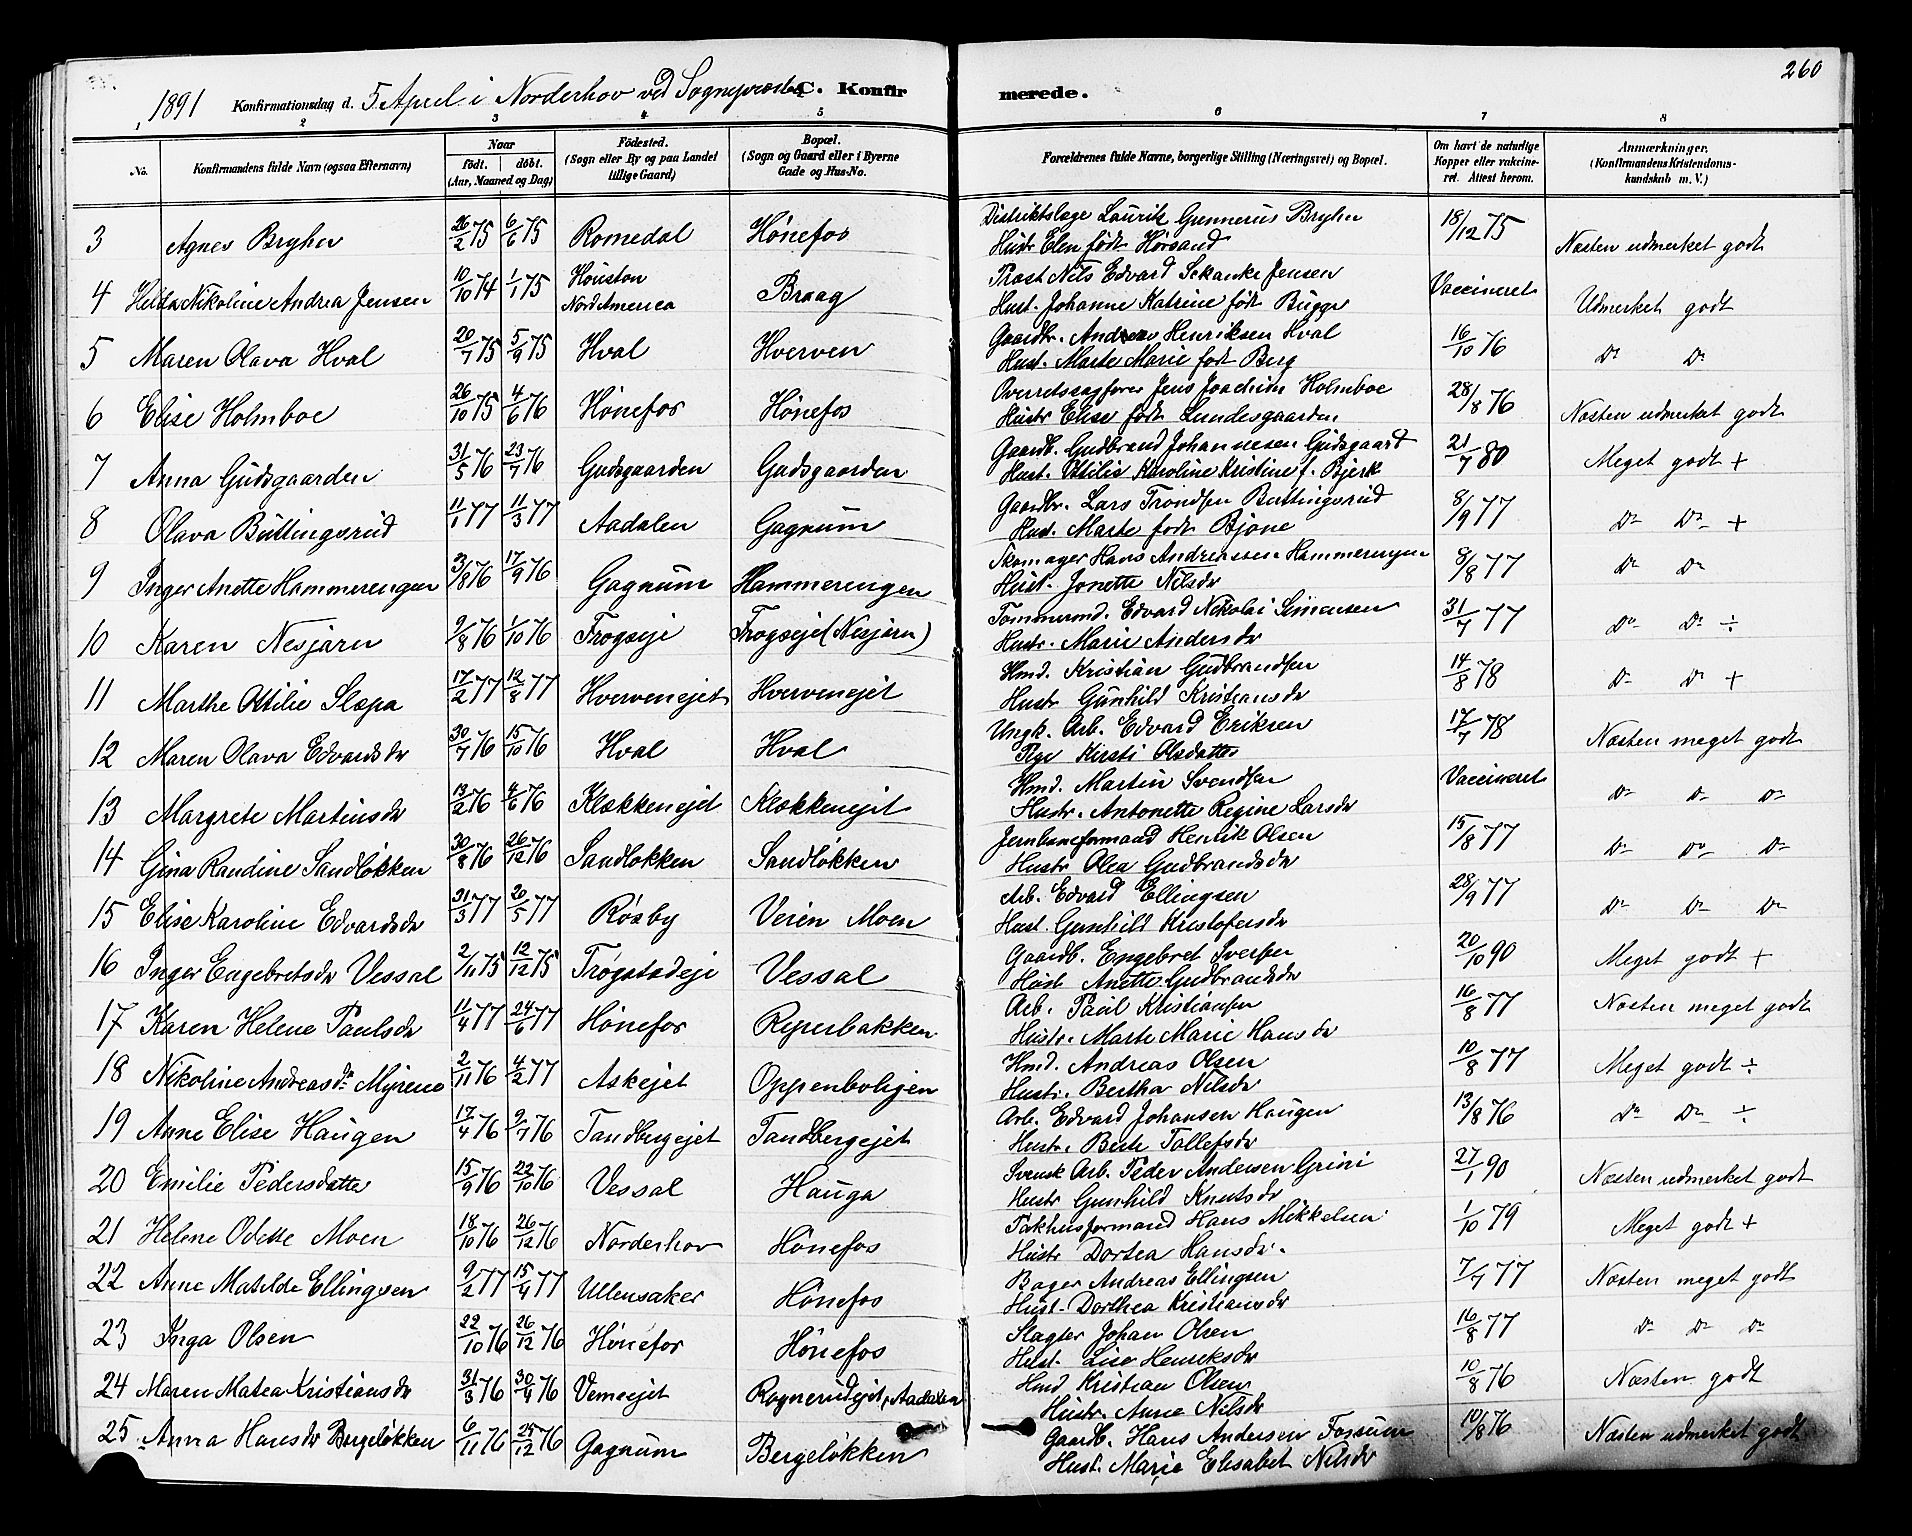 260
1891 Konfirmationsdag d. 5 April i Norderhov ved Sognepræsten C. Konfirmerede.
1 2 3 4 5 6 7 8
No. Konfirmandens fulde Navn (ogsaa Efternavn) Naar født. døbt. (Aar, Maaned og Dag) Födested. (Sogn eller By og paa Landet tillige Gaard) Bopæl. (Sogn og Gaard eller i Byerne Gade og Hus-No. Forældrenes fulde Navne, borgerlige Stilling (Næringsvei) og Bopæl. Om havt de naturlige Kopper eller vaccineret. Attest herom. Anmærkninger. (Konfirmandens Kristendomskundskab m. V.)
3 Agnes Bryhn 26/2 75 6/6 75 Romedal Hønefos Distriktslæge Lauritz Gunnerus Bryhn 18/12 75 Næsten udmerket godt
Hustr Elen født Hørsand
4 Hilda Nikoline Andrea Jensen 10/10 74 1/1 75 Houston Nord America Braag Prost Nils Edvard Schanke Jensen Vaccineret Udmerket godt
Hust. Johanne Katrine født Bugge
5 Maren Olava Hval 20/7 75 5/9 75 Hval Hverven Gaardbr. Andreas Henriksen Hval 16/10 76 Do Do
Hust. Marte Marie født Berg
6 Elise Holmboe 26/10 75 4/6 76 Hønefos Hønefos Overretssagfører Jens Joachim Holmboe 28/8 76 Næsten udmerket godt
Hustr Elise født Lundesgaarden
7 Anna Gudsgaarden 31/5 76 23/7 76 Gudsgaarden Gudsgaarden Gaardb. Gudbrand Johannesen Gudsgaard 21/7 80 Meget godt +
Hust. Ottilie Karoline Kristine f. Bjerk
8 Olava Buttingsrud 11/1 77 11/3 77 Aadalen Gagnum Gaardbr. Lars Trondsen Buttingsrud 8/9 77 Do Do +
Hust. Marte født Bjone
9 Inger Anette Hammerengen 3/8 76 17/9 76 Gagnum Hammerengen Skomager Hans Andreassen Hammerengen 8/8 77 Do Do
Hust. Jonette Nilsdr
10 Karen Nesjarn 9/8 76 1/10 76 Frogseje Frogseje (Nesjarn) Tømmermd. Edvard Nikolai Simensen 31/7 77 Do Do ÷
Hustr. Marie Andersdr
11 Marthe Ottilie Slæpa 17/2 77 12/8 77 Hvervenejet Hvervenejet Hmd. Kristian Gudbrandsen 14/8 78 Do Do +
Hustr Gunhild Kristiansdr
12 Maren Olava Edvardsdr 30/7 76 15/10 76 Hval Hval Ungk. Arb. Edvard Eriksen 17/7 78 Næsten meget godt
Pige Kirsti Olsdatter
13 Margrete Martinsdr 19/2 76 4/6 76 Klækkenejet Klækkenejet Hmd. Martin Svendsen Vaccineret Do Do Do
Hustr. Antonette Regine Larsdr
14 Gina Randine Sandløkken 30/8 76 26/12 76 Sandløkken Sandløkken Jernbaneformand Henrik Olsen 15/8 77 Do Do Do
Hustr Olea Gudbrandsdr
15 Elise Karoline Edvardsdr 31/3 77 20/5 77 Røsby Veien Moen Arb. Edvard Ellingsen 28/9 77 Do Do Do
Hust. Gunhild Kristofersdr
16 Inger Engebretsdr Vessal 2/11 75 12/12 75 Trøgstadeje Vessal Gaardb. Engebret Iversen 20/10 90 Meget godt +
Hust Anette Gudbrandsdr
17 Karen Helene Paulsdr 11/4 77 24/6 77 Hønefos Reperbakken Arb. Paul Kristiansen 16/8 77 Næsten meget godt
Hustr. Marte Marie Hansdr
18 Nikoline Andreasdr Myrene 2/11 76 4/2 77 Askejet Oppenboligen Hmd. Andreas Olsen 10/8 77 Meget godt ÷
Hustr. Bertha Nilsdr
19 Anne Elise Haugen 17/4 76 9/7 76 Tandbergejet Tandbergejet Arb. Edvard Johansen Haugen 13/8 76 Do Do ÷
Hustr. Berte Tollefsdr
20 Emilie Pedersdatter 15/9 76 22/10 76 Vessal Hauga Svensk Arb. Peder Andersen Grini 27/1 90 Næsten udmerket godt
Hustr Gunhild Knutsdr
21 Helene Odette Moen 18/10 76 26/12 76 Norderhov Hønefos Pakhusformand Hans Mikkelsen 1/10 79 Meget godt +
Hustr Dortea Hansdr.
22 Anne Matilde Ellingsen 9/2 77 15/4 77 Ullensaker Hønefos Bager Andreas Ellingsen 7/7 77 Næsten meget godt
Hust. Dorthea Kristiansdr
23 Inga Olsen 22/10 76 26/12 76 Hønefos Hønefos Slagter Johan Olsen 16/8 77 Do Do Do
Hust. Lise Henriksdr
24 Maren Matea Kristiansdr 31/3 76 30/4 76 Vemeejet Rognerudejet, Aadalen Hmd Kristian Olsen 10/8 76 Næsten godt
Hustr. Anne Nilsdr
25 Anna Hansdr Bergeløkken 6/11 76 25/12 76 Gagnum Bergeløkken Gaardb. Hans Andersen Fossum 10/8 76 Næsten udmerket godt
Hust. Marie Elisabet Nilsdr